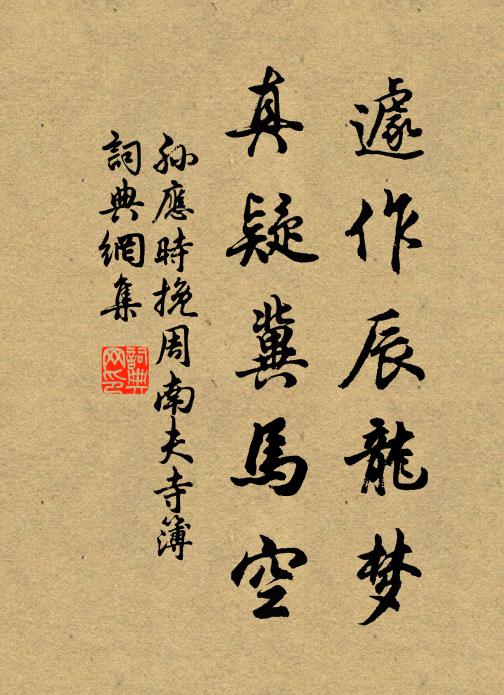 遽作辰龍梦
真疑冀馬空
孫應時挽周南夫寺簿
詞典網集
詞典网印